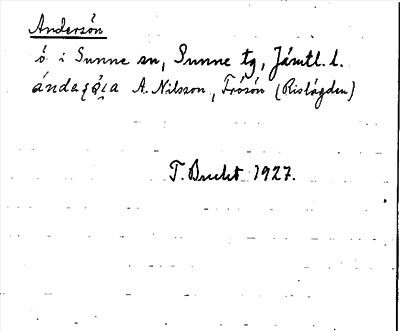 Andersön
ö i Sunne sn, Sunne tg, Jämtl. l.
A. Nilsson, Frösön (Rislägden)
T. Bucht 1927.